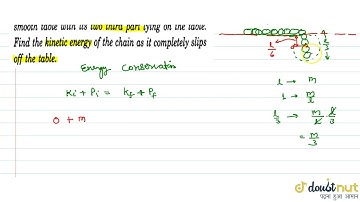 smooth table with its two third part lying on the table.
Find the kinetic energy of the chain as it completely slips
off the table.
Energy Conservation
Ki + Pi = Kf + Pf
0 + m
l/6
l/3
l → m
1 → m/l
l/3 → m/l · l/3
= m/3
doubtnut
पढ़ना हुआ आसान